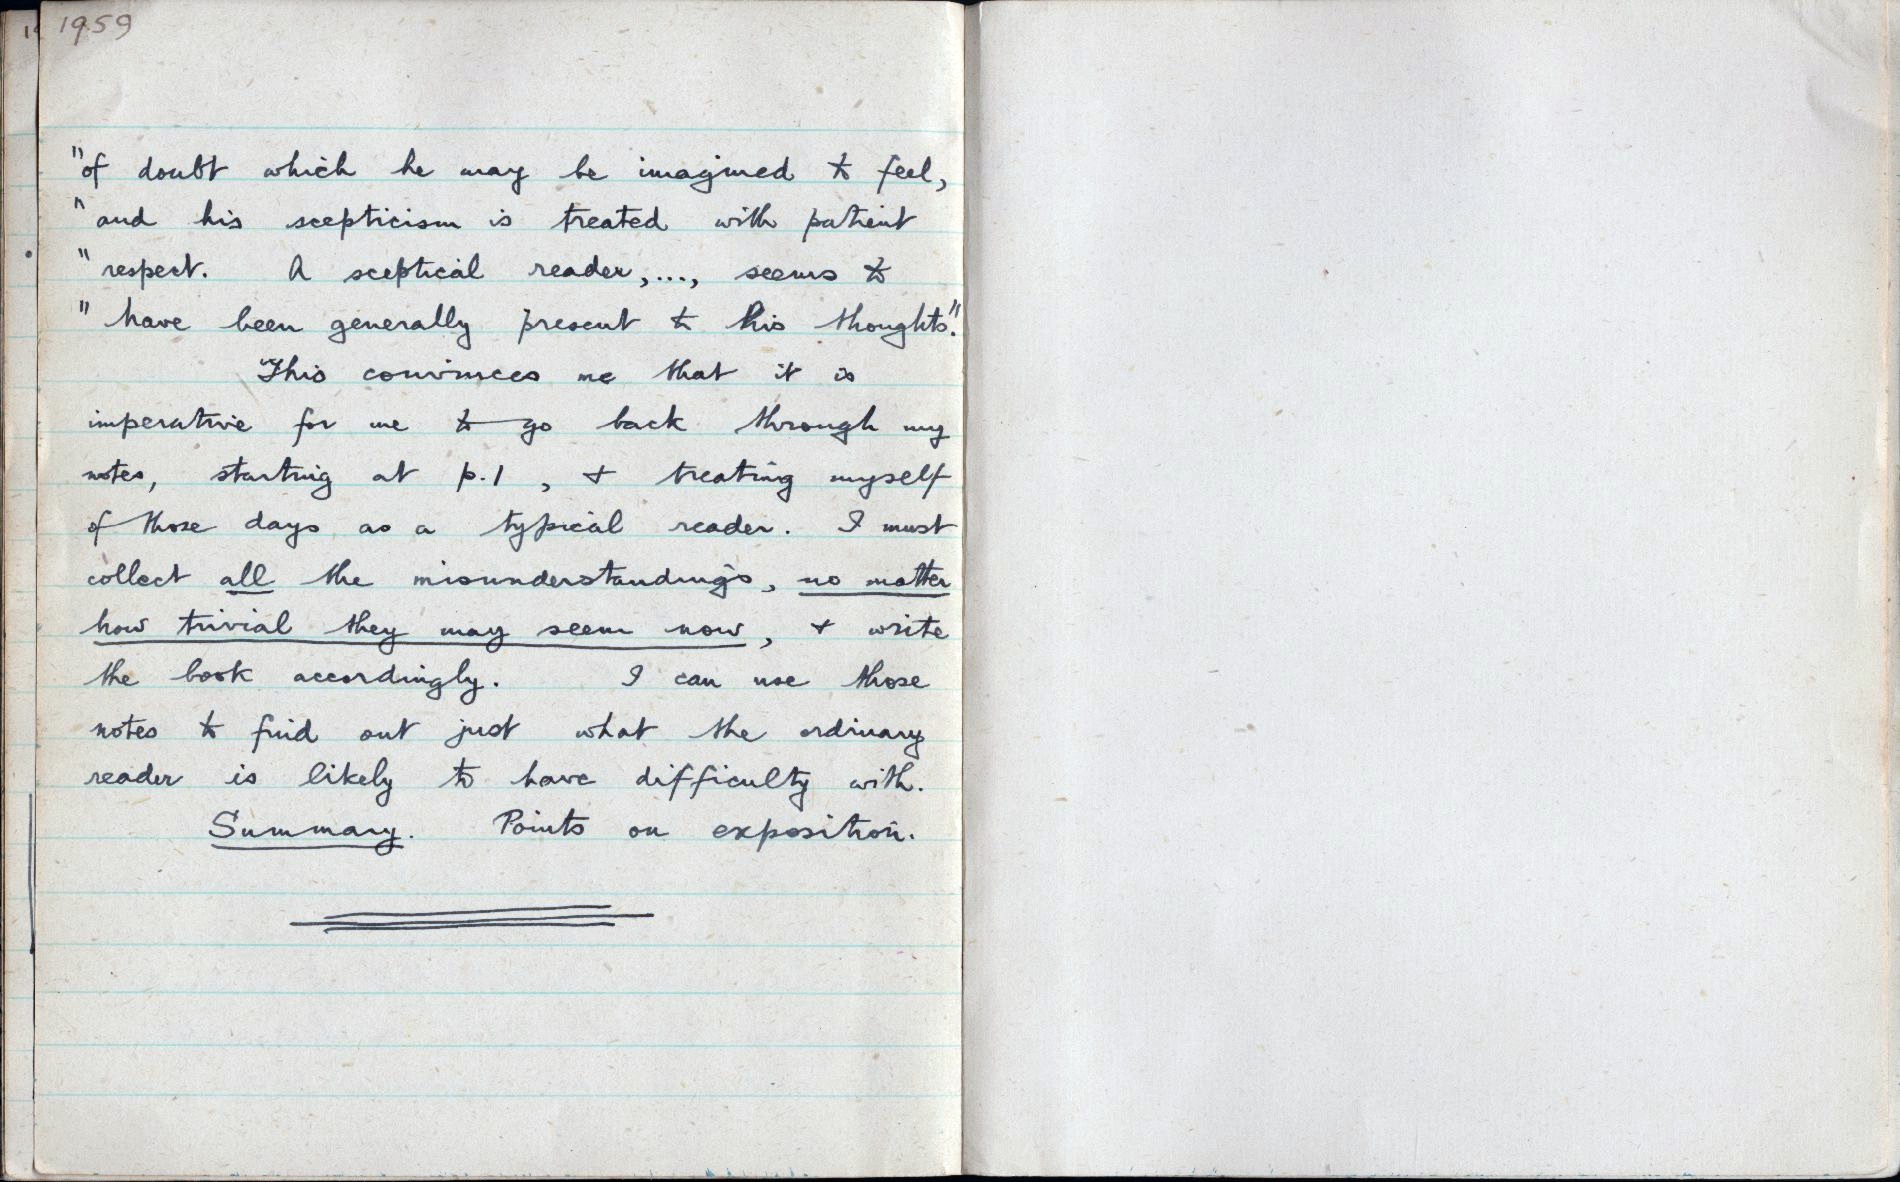 1959
"of doubt which he may be imagined to feel,
"and his scepticism is treated with patient
"respect. A sceptical reader,..., seems to
"have been generally present to his thoughts."
This convinces me that it is
imperative for me to go back through my
notes, starting at p.1, & treating myself
of those days as a typical reader. I must
collect all the misunderstandings, no matter
how trivial they may seem now, & write
the book accordingly. I can use those
notes to find out just what the ordinary
reader is likely to have difficulty with.
Summary. Points on exposition.